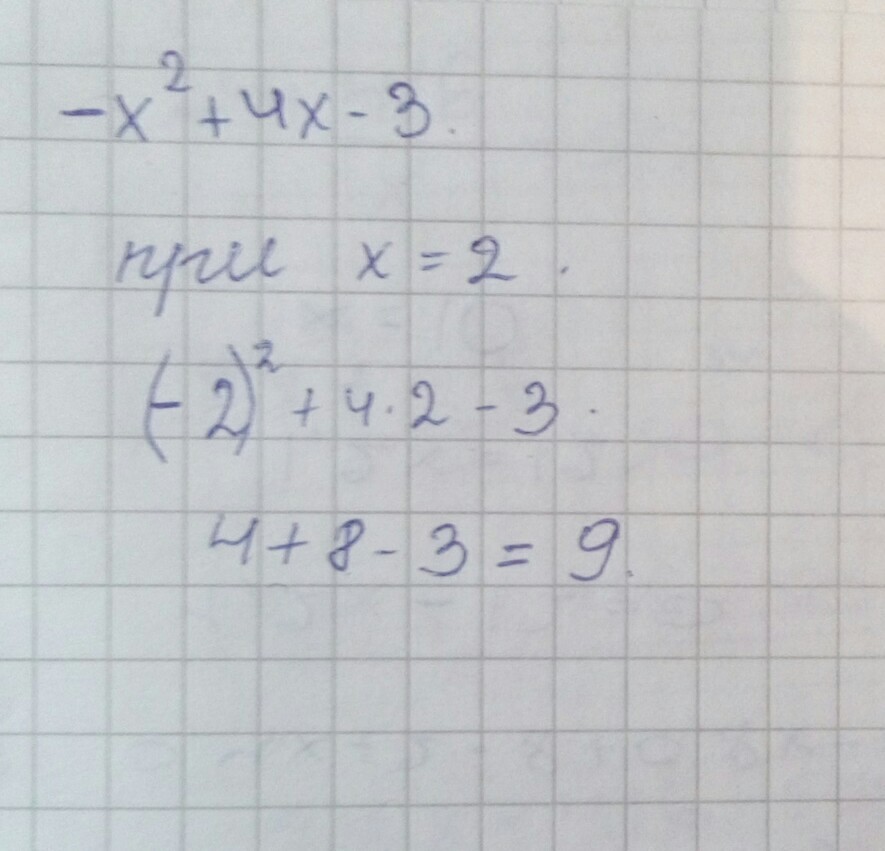 -x² + 4x - 3.
при x = 2.
(-2)² + 4·2 - 3.
4 + 8 - 3 = 9.